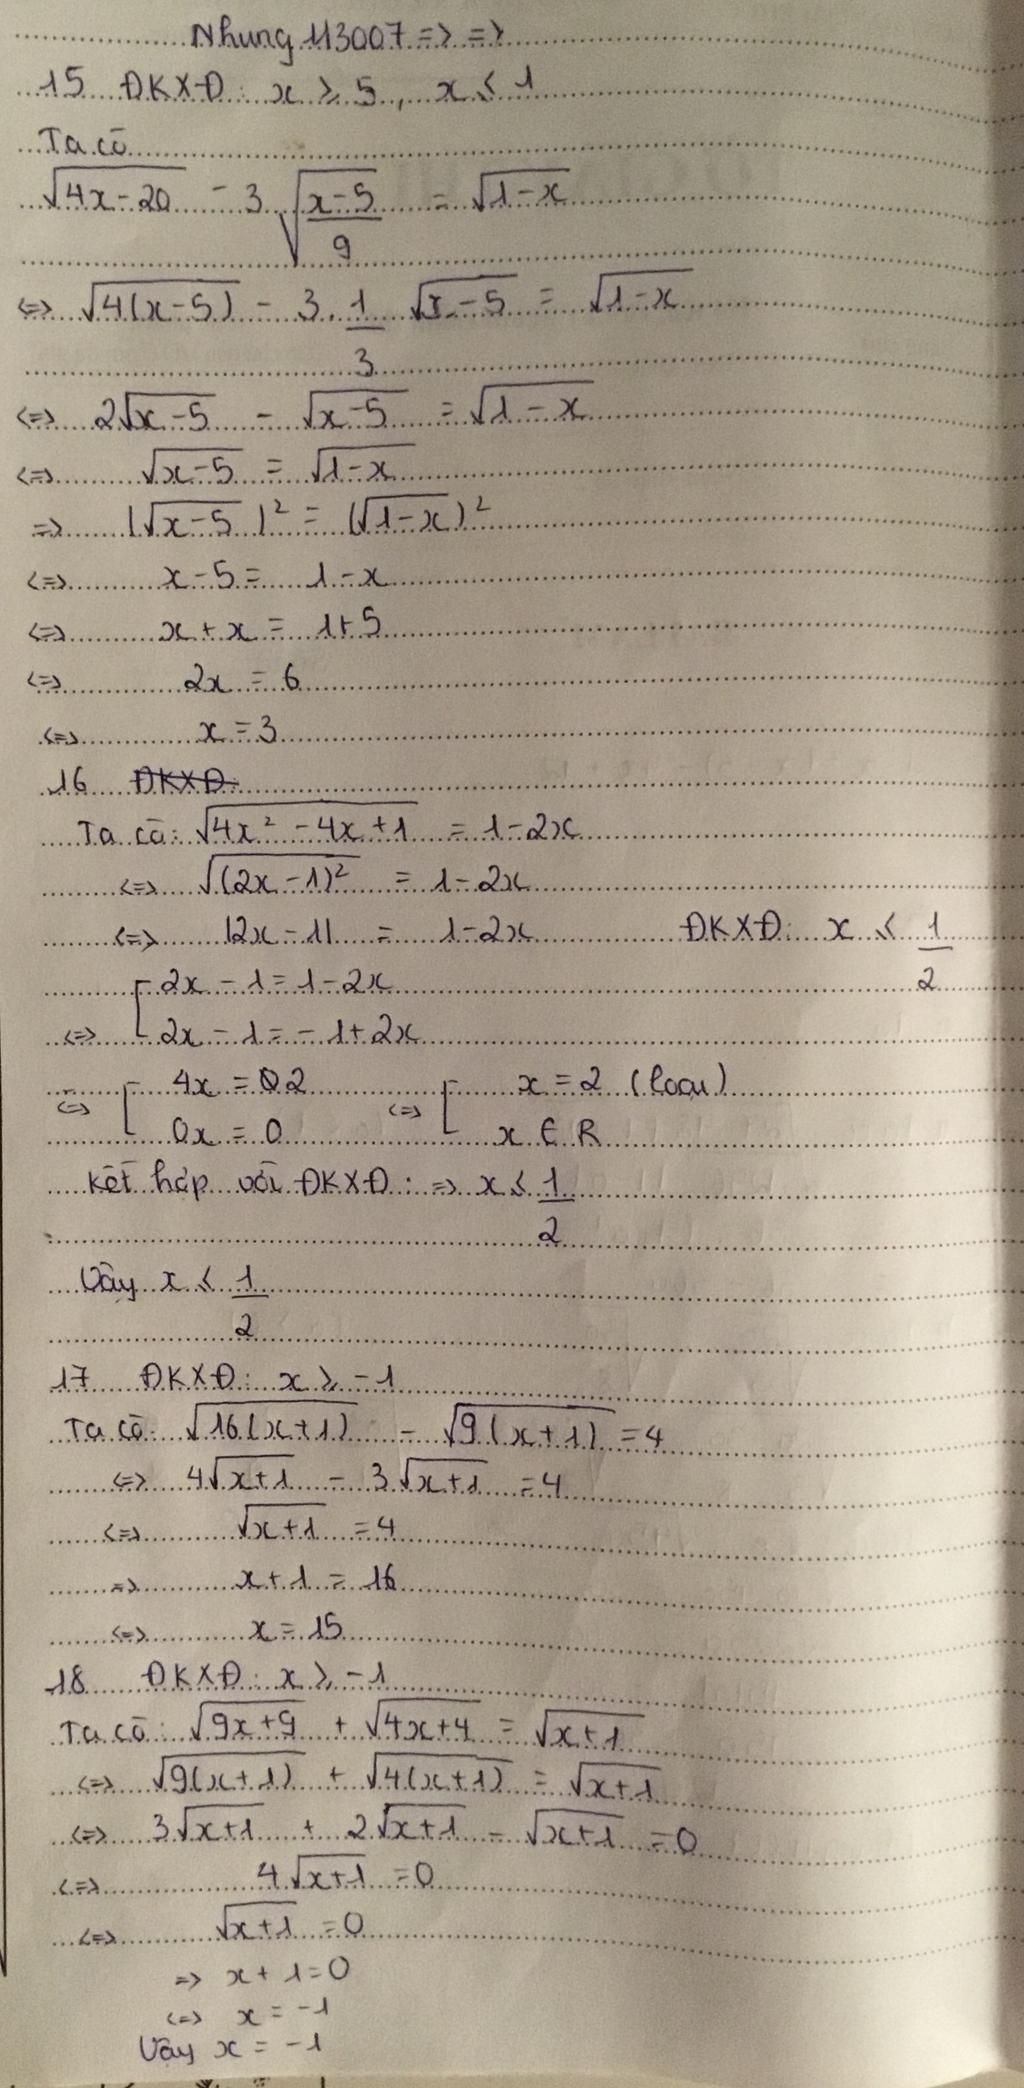 Nhung 113007 => =>
15 ĐKXĐ: x ≥ 5, x ≤ 1
Ta có
√(4x-20) - 3√((x-5)/9) = √(1-x)
<=> √(4(x-5)) - 3. 1/3 √(x-5) = √(1-x)
<=> 2√(x-5) - √(x-5) = √(1-x)
<=> √(x-5) = √(1-x)
=> (√(x-5))² = (√(1-x))²
<=> x-5 = 1-x
<=> x+x = 1+5
<=> 2x = 6
<=> x = 3
16 ĐKXĐ:
Ta có: √(4x² - 4x+1) = 1-2x
<=> √((2x-1)²) = 1-2x
<=> |2x-1| = 1-2x ĐKXĐ: x ≤ 1/2
<=> [ 2x-1 = 1-2x
2x-1 = -1+2x
<=> [ 4x = 2 <=> [ x = 2 (loại)
0x = 0 x ∈ R
Kết hợp với ĐKXĐ: => x ≤ 1/2
Vậy x ≤ 1/2
17 ĐKXĐ: x ≥ -1
Ta có: √(16(x+1)) - √(9(x+1)) = 4
<=> 4√(x+1) - 3√(x+1) = 4
<=> √(x+1) = 4
=> x+1 = 16
<=> x = 15
18 ĐKXĐ: x ≥ -1
Ta có: √(9x+9) + √(4x+4) = √(x+1)
<=> √(9(x+1)) + √(4(x+1)) = √(x+1)
<=> 3√(x+1) + 2√(x+1) - √(x+1) = 0
<=> 4√(x+1) = 0
<=> √(x+1) = 0
=> x+1 = 0
<=> x = -1
Vậy x = -1